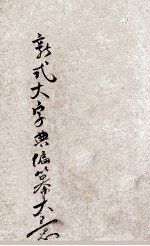 新式大字典編纂大意